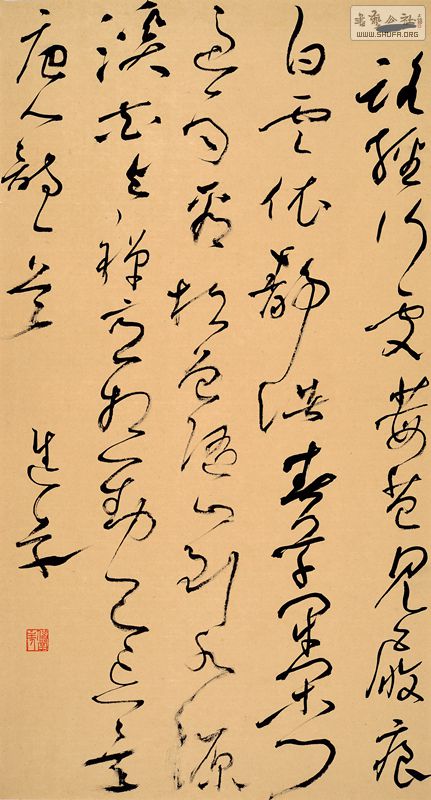 書藝公社
WWW.SHUFA.ORG
一路經行處莓苔見屐痕
白雲依靜渚春草閉閑門
過雨看松色隨山到水源
溪花與禪意相對忘言
唐人詩一首